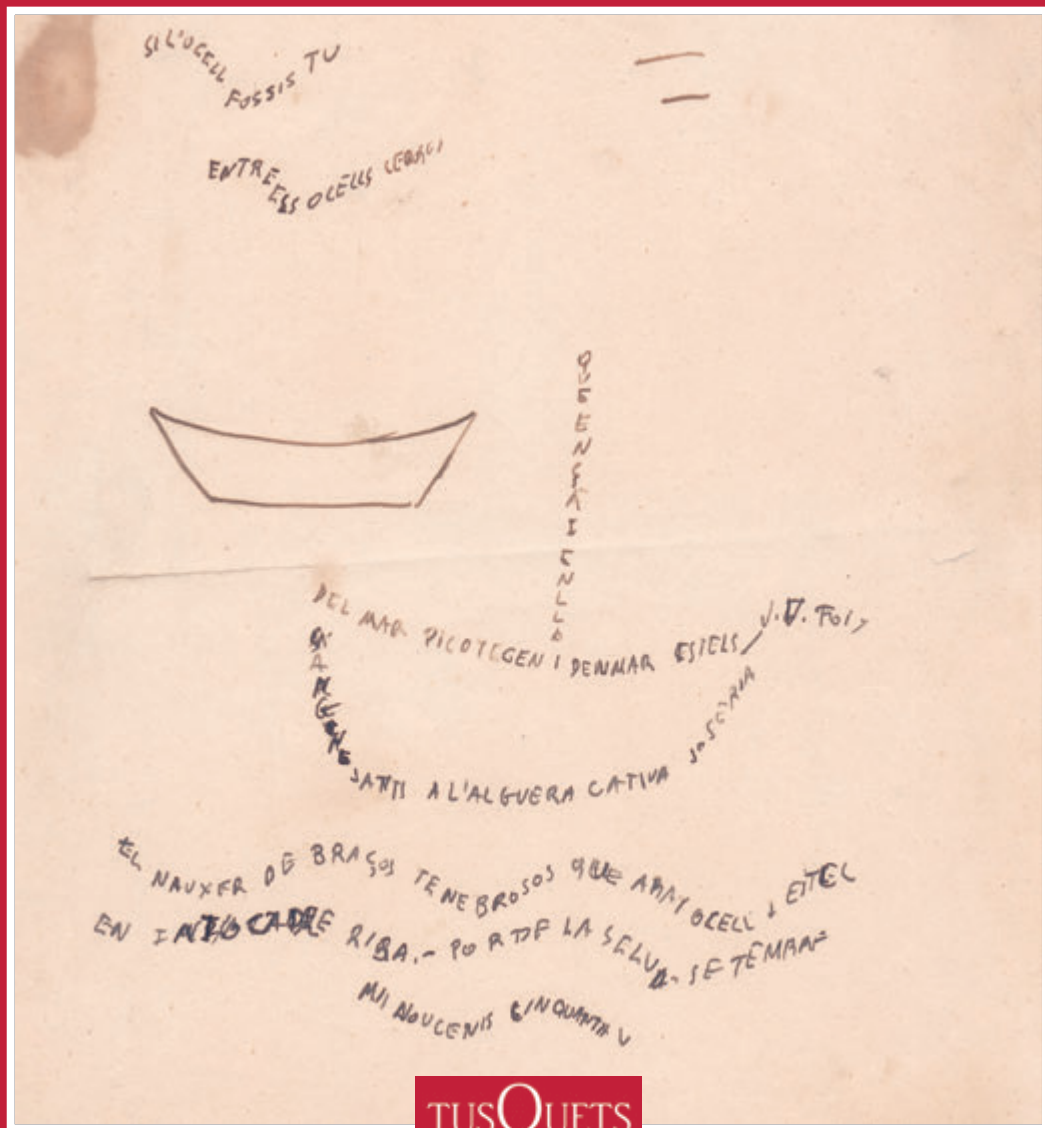 SI L'OCELL FOSSIS TU
ENTRE ELS OCELLS
QUE ENÇÀ I ENLLÀ
DEL MAR PICOTEGEN I DENMAR ESTELS,
J.V. FOIX,
A L'ALGUERA CATIVA JO SERIA
EL NAUXER DE BRAÇOS TENEBROSOS QUE OCELL I ESTEL
EN RIBA.- PORT DE LA SELVA- SETEMBRE
MIL NOUCENTS CINQUANTA U
TUSQUETS